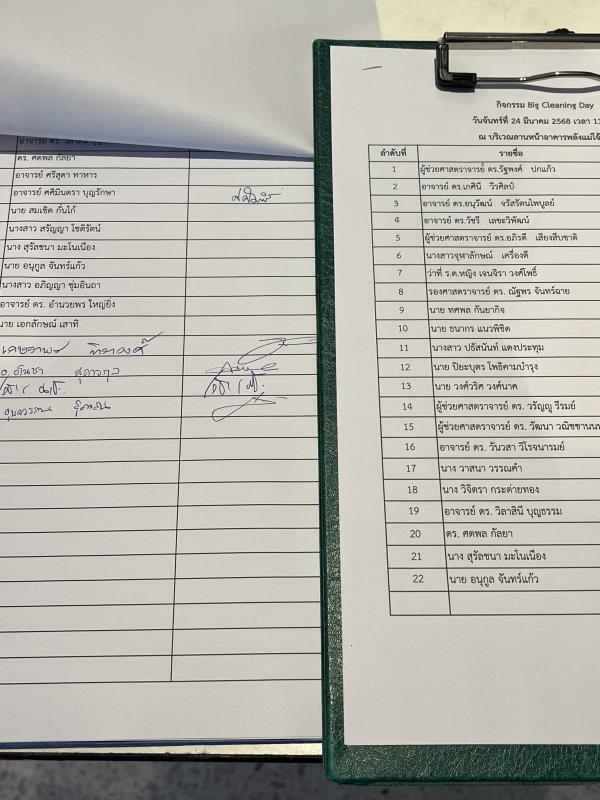 ดร. ศตพล กัลยา
อาจารย์ ศรีสุดา ทาหาร
อาจารย์ ศศิมินตรา บุญรักษา
นาย สมเชิด กั้นไก้
นางสาว สรัญญา โชติรัตน์
นาง สุรัลชนา มะโนเนือง
นาย อนุกูล จันทร์แก้ว
นางสาว อภิญญา ชุ่มอินถา
อาจารย์ ดร. อำนวยพร ใหญ่ยิ่ง
นาย เอกลักษณ์ เสาทิ
กิจกรรม Big Cleaning Day
วันจันทร์ที่ 24 มีนาคม 2568 เวลา 13
ณ บริเวณลานหน้าอาคารพลังแม่โจ้
ลำดับที่ รายชื่อ
1 ผู้ช่วยศาสตราจารย์ ดร.รัฐพงศ์ ปกแก้ว
2 อาจารย์ ดร.เกศินี วีรศิลป์
3 อาจารย์ ดร.อนุวัฒน์ จรัสรัตนไพบูลย์
4 อาจารย์ ดร.วัชรี เลขะวิพัฒน์
5 ผู้ช่วยศาสตราจารย์ ดร.อภิรดี เสียงสืบชาติ
6 นางสาวจุฬาลักษณ์ เครื่องดี
7 ว่าที่ ร.ต.หญิง เจนจิรา วงศ์โพธิ์
8 รองศาสตราจารย์ ดร. ณัฐพร จันทร์ฉาย
9 นาย ทศพล กันยากิจ
10 นาย ธนากร แนวพิชิต
11 นางสาว ปธัสนันท์ แดงประทุม
12 นาย ปิยะบุตร โพธิคามบำรุง
13 นาย วงศ์วริศ วงศ์นาค
14 ผู้ช่วยศาสตราจารย์ ดร. วรัญญู รีรมย์
15 ผู้ช่วยศาสตราจารย์ ดร. วัฒนา วณิชชานนท
16 อาจารย์ ดร. วันวสา วิโรจนารมย์
17 นาง วาสนา วรรณคำ
18 นาง วิจิตรา กระต่ายทอง
19 อาจารย์ ดร. วิลาสินี บุญธรรม
20 ดร. ศตพล กัลยา
21 นาง สุรัลชนา มะโนเนือง
22 นาย อนุกูล จันทร์แก้ว